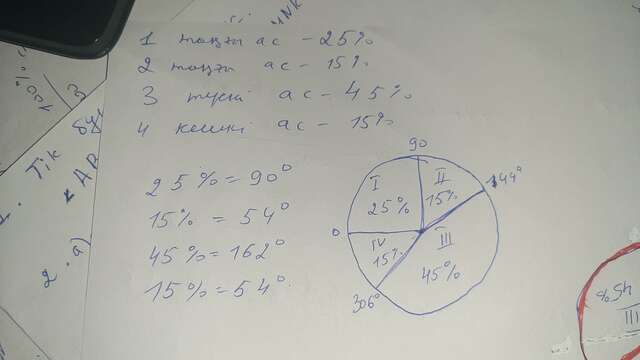 1 таңғы ас - 25%
2 таңғы ас - 15%
3 түскі ас - 45%
4 кешкі ас - 15%
25% = 90°
15% = 54°
45% = 162°
15% = 54°
90
I
II
144°
25%
15%
0
IV
III
15%
45%
306°
100%
3
1. Тік
АВ
2. а)
45%
III